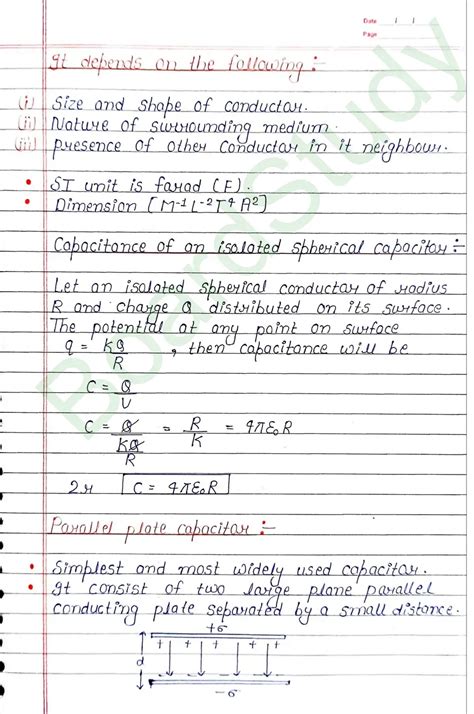 Date / /
Page
It depends on the following :-
(i) Size and shape of conductor.
(ii) Nature of surrounding medium.
(iii) presence of other conductor in it neighbour.
• SI unit is farad (F).
• Dimension [M⁻¹L⁻²T⁴A²]
Capacitance of an isolated spherical capacitor :-
Let an isolated spherical conductor of radius
R and charge Q distributed on its surface.
The potential at any point on surface
q = KQ/R , then capacitance will be
C = Q/V
C = Q/(KQ/R) = R/K = 4πε₀R
C = 4πε₀R
Parallel plate capacitor :-
• Simplest and most widely used capacitor.
• It consist of two large plane parallel
conducting plate separated by a small distance.
+σ
+ + + + +
d
-σ
BoardStudy